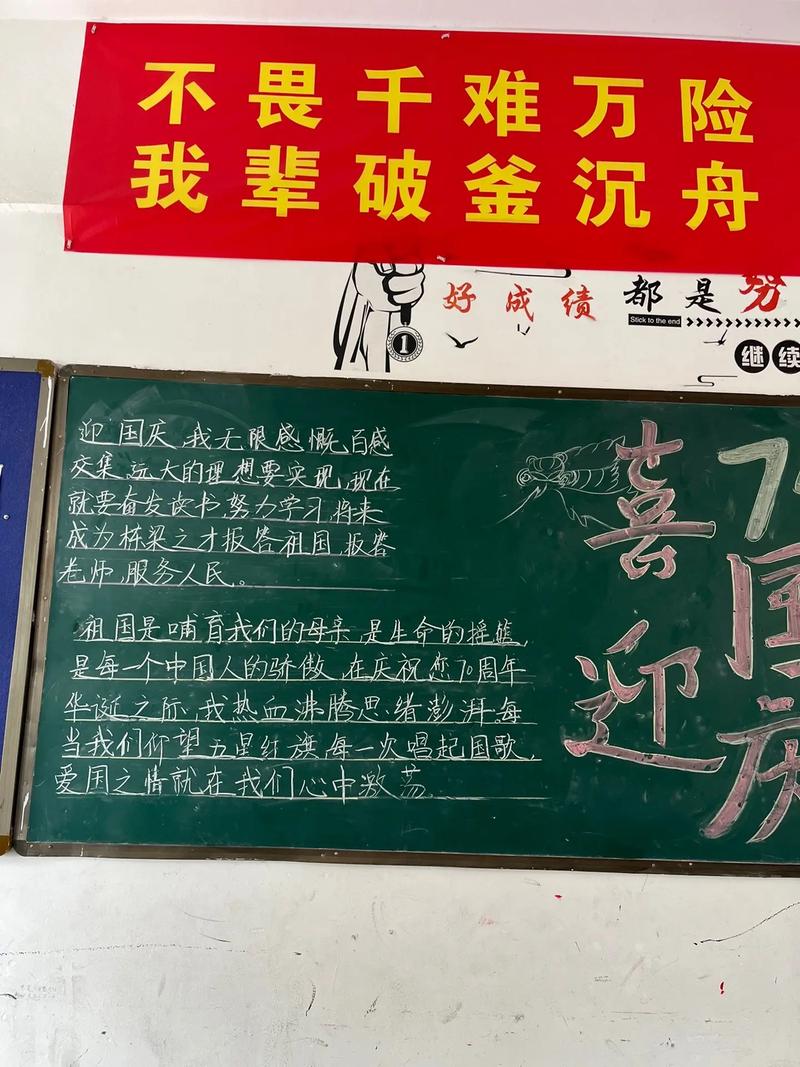 不畏千难万险
我辈破釜沉舟
好成绩都是努
Stick to the end
1
继续
迎国庆,我无限感慨,百感
交集,远大的理想要实现,现在
就要奋发读书,努力学习,将来
成为栋梁之才报答祖国,报答
老师,服务人民。
祖国是哺育我们的母亲,是生命的摇篮,
是每一个中国人的骄傲,在庆祝您70周年
华诞之际,我热血沸腾思绪澎湃,每
当我们仰望五星红旗,每一次唱起国歌,
爱国之情就在我们心中激荡.
喜迎
7
国庆